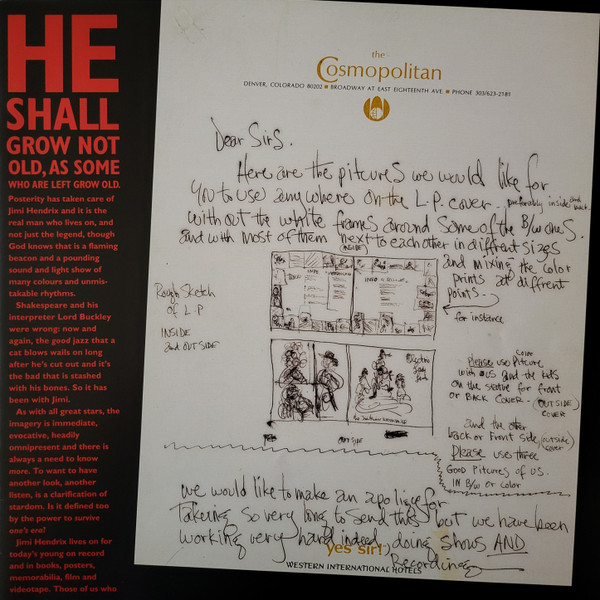 HE
SHALL
GROW NOT
OLD, AS SOME
WHO ARE LEFT GROW OLD.
Posterity has taken care of
Jimi Hendrix and it is the
real man who lives on, and
not just the legend, though
God knows that is a flaming
beacon and a pounding
sound and light show of
many colours and unmis-
takable rhythms.
Shakespeare and his
interpreter Lord Buckley
were wrong: now and
again, the good jazz that a
cat blows wails on long
after he's cut out and it's
the bad that is stashed
with his bones. So it has
been with Jimi.
As with all great stars, the
imagery is immediate,
evocative, headily
omnipresent and there is
always a need to know
more. To want to have
another look, another
listen, is a clarification of
stardom. Is it defined too
by the power to survive
one's era?
Jimi Hendrix lives on for
today's young on record
and in books, posters,
memorabilia, film and
videotape. Those of us who
the
Cosmopolitan
DENVER, COLORADO 80202 ■ BROADWAY AT EAST EIGHTEENTH AVE. ■ PHONE 303/623-2181
Dear Sirs.
Here are the pitcures we would like for
you to use anywhere on the L.P. cover. preferably inside and back
with out the white frames around some of the B/W ones.
and with most of them next to each other in diffrent sizes
(INSIDE)
and mixing the color
prints at diffrent
points.
for instance
Rough Sketch
of L.P
INSIDE
and OUTSIDE
Electric
Lady
Land
OUTSIDE
Please use color pitcure
with us and the kids
on the statue for front
or BACK COVER - (OUTSIDE)
COVER
and the other
back or front side (outside)
cover
Please use three
Good Pitcures of us
IN B/W or color
we would like to make an apologize for
Takeing so very long to send this but we have been
working very hard indeed, doing shows AND
Recording
yes sir!
WESTERN INTERNATIONAL HOTELS